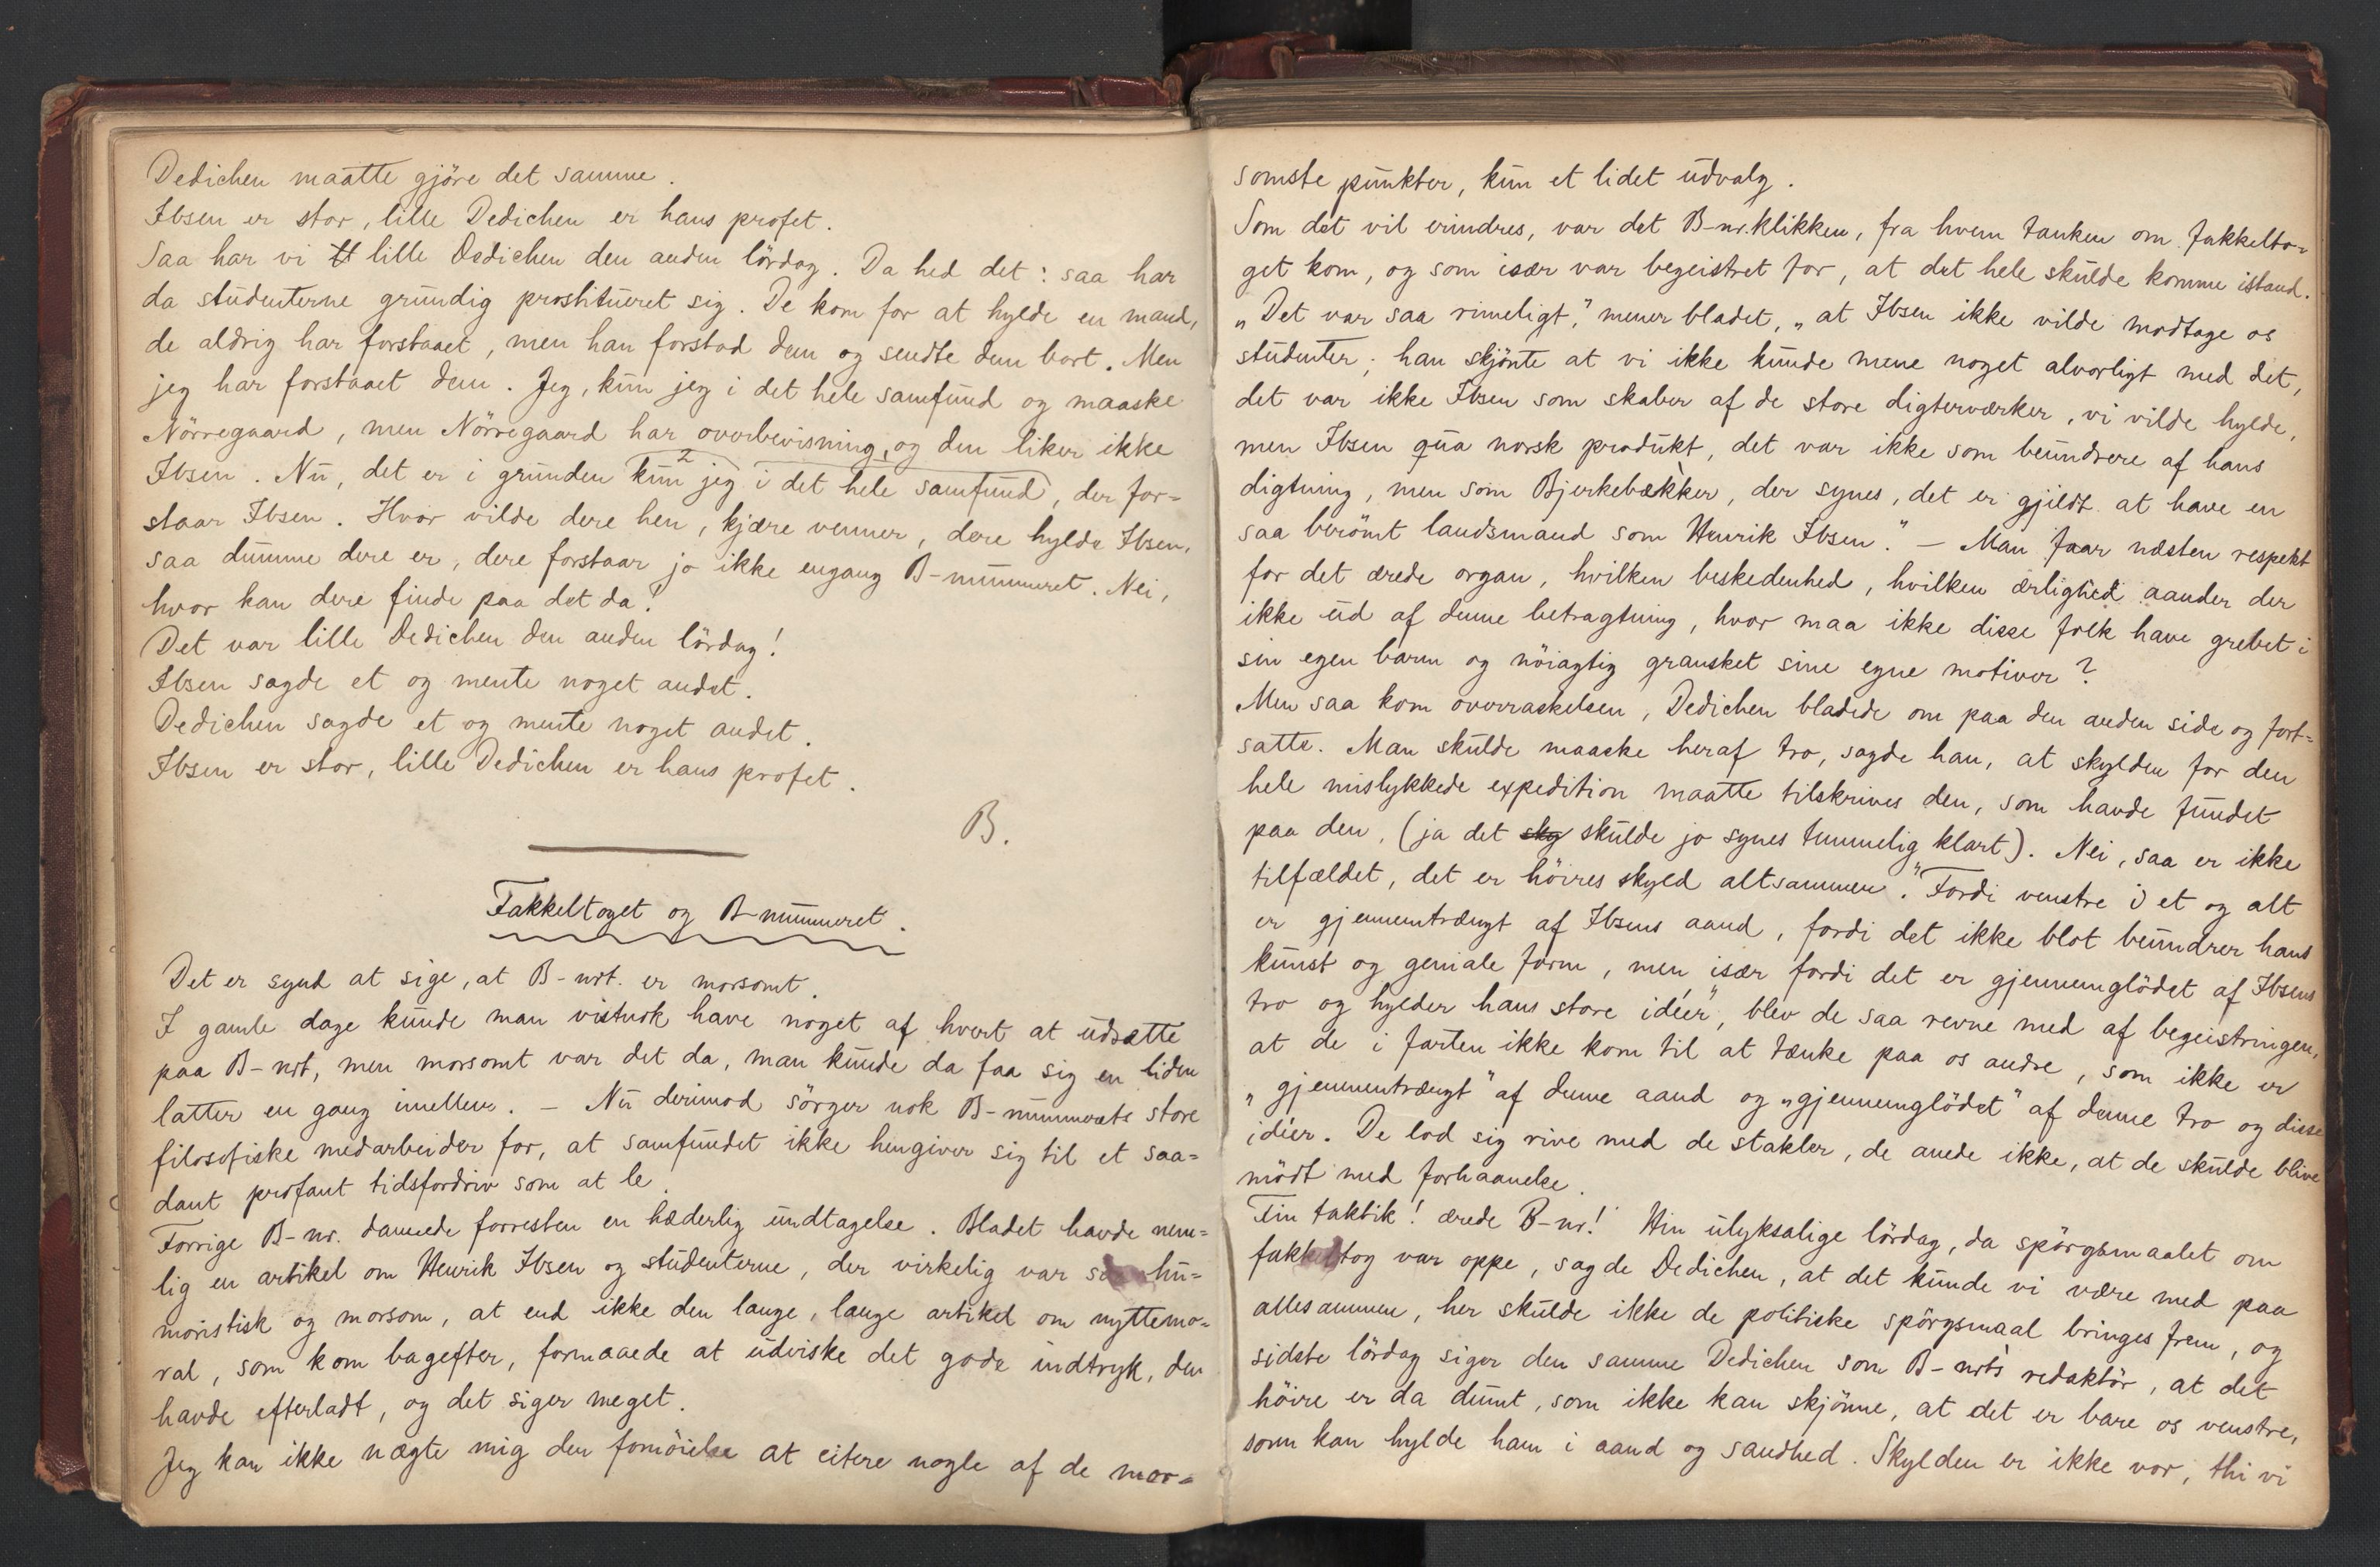 Dedichen maatte gjöre det samme.
Ibsen er stor, lille Dedichen er hans profet.
Saa har vi lille Dedichen den anden lördag. Da hed det: saa har
da studenterne grundig prostitueret sig. De kom for at hylde en mand,
de aldrig har forstaaet, men han forstod dem og sendte dem bort. Men
jeg har forstaaet dem. Jeg, kun jeg i det hele samfund og maaske
Nörregaard, men Nörregaard har overbevisning, og den liker ikke
Ibsen. Nu, det er i grunden kun 2 jeg i det hele samfund, der for-
staar Ibsen. Hvor vilde dere hen, kjære venner, dere hylde Ibsen,
saa dumme dere er, dere forstaar jo ikke engang B-nummeret. Nei,
hvor kan dere finde paa det da?
Det var lille Dedichen den anden lördag!
Ibsen sagde et og mente noget andet.
Dedichen sagde et og mente noget andet.
Ibsen er stor, lille Dedichen er hans profet.
B.
Fakkeltoget og B-nummeret.
Det er synd at sige, at B-nrt. er morsomt.
I gamle dage kunde man vistnok have noget af hvert at udsætte
paa B-nrt, men morsomt var det da, man kunde da faa sig en liden
latter en gang imellem. — Nu derimod sörger nok B-nummerets store
filosofiske medarbeider for, at samfundet ikke hengiver sig til et saa-
dant profant tidsfordriv som at le.
Forrige B-nr. dannede forresten en hæderlig undtagelse. Bladet havde nem-
lig en artikel om Henrik Ibsen og studenterne, der virkelig var saa hu-
moristisk og morsom, at end ikke den lange, lange artikel om nyttemo-
ral, som kom bagefter, formaaede at udviske det gode indtryk, den
havde efterladt, og det siger meget.
Jeg kan ikke nægte mig den fornöielse at citere nogle af de mor-
somste punkter, kun et lidet udvalg.
Som det vil erindres, var det B-nr.klikken, fra hvem tanken om fakkelto-
get kom, og som især var begeistret for, at det hele skulde komme istand.
„Det var saa rimeligt," mener bladet, „at Ibsen ikke vilde modtage os
studenter; han skjönte at vi ikke kunde mene noget alvorligt med det,
det var ikke Ibsen som skaber af de store digterværker, vi vilde hylde,
men Ibsen qua norsk produkt, det var ikke som beundrere af hans
digtning, men som Bjerkebækker, der synes, det er gjildt at have en
saa berömt landsmand som Henrik Ibsen." — Man faar næsten respekt
for det ærede organ, hvilken beskedenhed, hvilken ærlighed aander der
ikke ud af denne betragtning, hvor maa ikke disse folk have grebet i
sin egen barm og nöiagtig gransket sine egne motiver?
Men saa kom overraskelsen, Dedichen bladede om paa den anden side og fort-
satte. Man skulde maaske heraf tro, sagde han, at skylden for den
hele mislykkede expedition maatte tilskrives den, som havde fundet
paa den, (ja det sky skulde jo synes temmelig klart). Nei, saa er ikke
tilfældet, det er höires skyld altsammen. "Fordi venstre i et og alt
er gjennemtrængt af Ibsens aand, fordi det ikke blot beundrer hans
kunst og geniale form, men især fordi det er gjennemglödet af Ibsens
tro og hylder hans store idéer", blev de saa revne med af begeistringen,
at de i farten ikke kom til at tænke paa os andre, som ikke er
„gjennemtrængt" af denne aand og „gjennemglödet" af denne tro og disse
idéer. De lod sig rive med de stakler, de anede ikke, at de skulde blive
mödt med forhaanelse.
Fin taktik! ærede B-nr! Hin ulyksalige lördag, da spörgsmaalet om
fakkeltog var oppe, sagde Dedichen, at det kunde vi være med paa
allesammen, her skulde ikke de politiske spörgsmaal bringes frem, og
sidste lördag siger den samme Dedichen som B-nrts redaktör, at det
höire er da dumt, som ikke kan skjönne, at det er bare os venstre,
som kan hylde ham i aand og sandhed. Skylden er ikke vor, thi vi